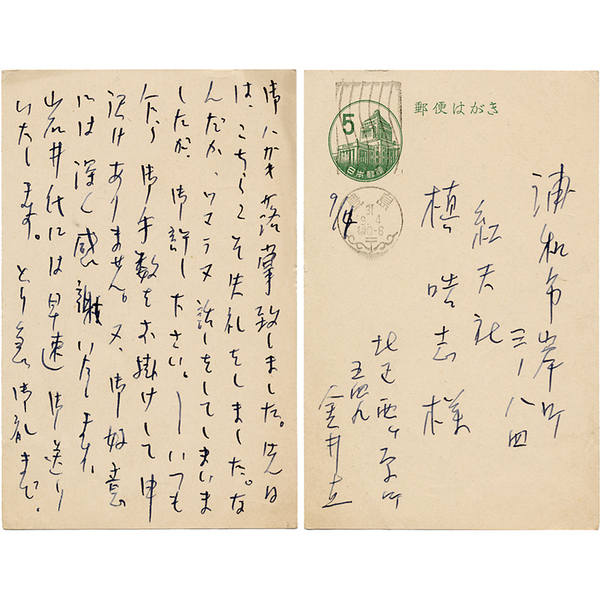 御ハガキ落掌致しました。先日
は、こちらこそ失礼をしました。な
んだか、話しをしてしまいま
したが、御許し下さい。―いつも
御手数を掛けして申
訳けありません。又、御好意
には深く感謝いたします。
岩井氏には早速御送り
いたします。とり急ぎ御礼まで。
郵便はがき
5
日本郵便
豊島
31
9/14
浦和市岸町
三ノ八四
紅天社
槙晧志様
北区西ヶ原町
五四九
金井直